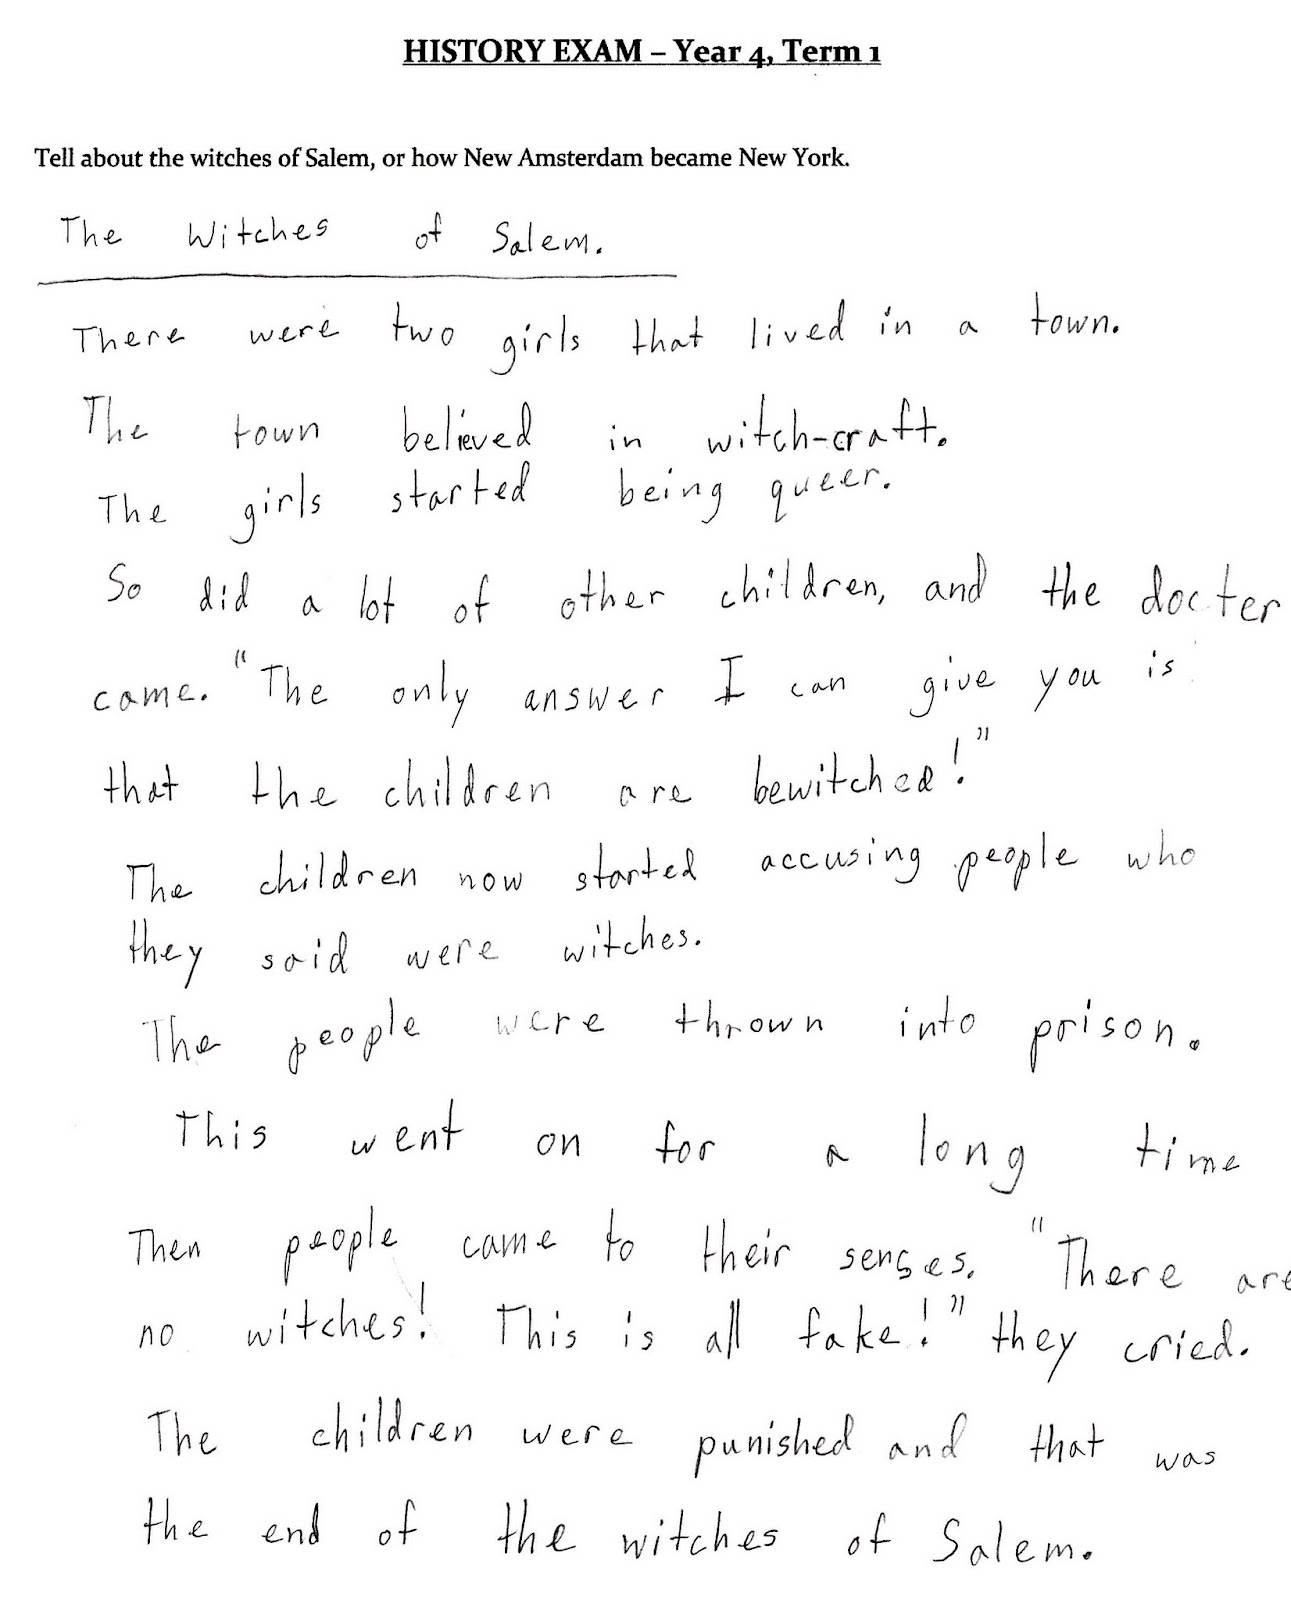 HISTORY EXAM – Year 4, Term 1
Tell about the witches of Salem, or how New Amsterdam became New York.
The Witches of Salem.
There were two girls that lived in a town.
The town believed in witch-craft.
The girls started being queer.
So did a lot of other children, and the docter
came. "The only answer I can give you is
that the children are bewitched!"
The children now started accusing people who
they said were witches.
The people were thrown into prison.
This went on for a long time
Then people came to their senses. "There are
no witches! This is all fake!" they cried.
The children were punished and that was
the end of the witches of Salem.